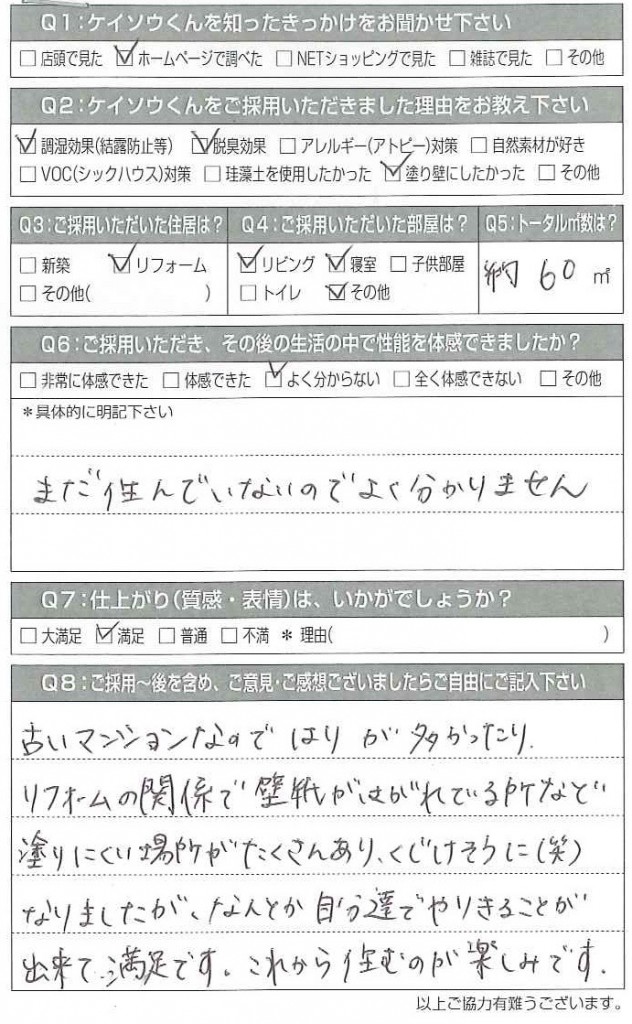 Q1:ケイソウくんを知ったきっかけをお聞かせ下さい
□店頭で見た ☑ホームページで調べた □NETショッピングで見た □雑誌で見た □その他
Q2:ケイソウくんをご採用いただきました理由をお教え下さい
☑調湿効果(結露防止等) ☑脱臭効果 □アレルギー(アトピー)対策 □自然素材が好き
□VOC(シックハウス)対策 □珪藻土を使用したかった ☑塗り壁にしたかった □その他
Q3:ご採用いただいた住居は? Q4:ご採用いただいた部屋は? Q5:トータル㎡数は?
□新築 ☑リフォーム ☑リビング ☑寝室 □子供部屋 約60㎡
□その他( ) □トイレ ☑その他
Q6:ご採用いただき、その後の生活の中で性能を体感できましたか?
□非常に体感できた □体感できた ☑よく分からない □全く体感できない □その他
*具体的に明記下さい
まだ住んでいないのでよく分かりません
Q7:仕上がり(質感・表情)は、いかがでしょうか?
□大満足 ☑満足 □普通 □不満 *理由( )
Q8:ご採用〜後を含め、ご意見・ご感想ございましたらご自由にご記入下さい
古いマンションなので はり が 多かったり、
リフォームの関係で壁紙がはがれている所など
塗りにくい場所がたくさんあり、くじけそうに(笑)
なりましたが、なんとか 自分達でやりきることが
出来て、満足です。これから住むのが楽しみです。
以上ご協力有難うございます。